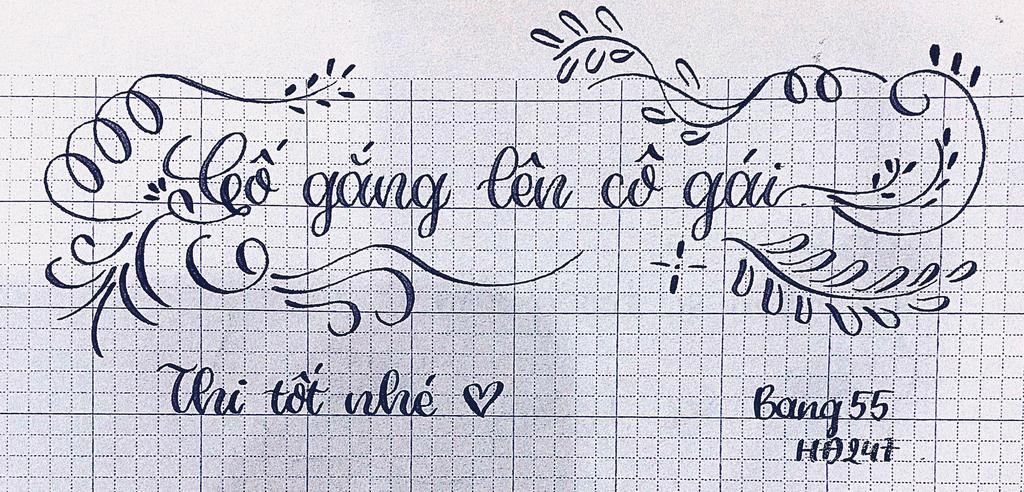 Cố gắng lên cô gái
Thi tốt nhé ♡
Bang 55
HĐ247